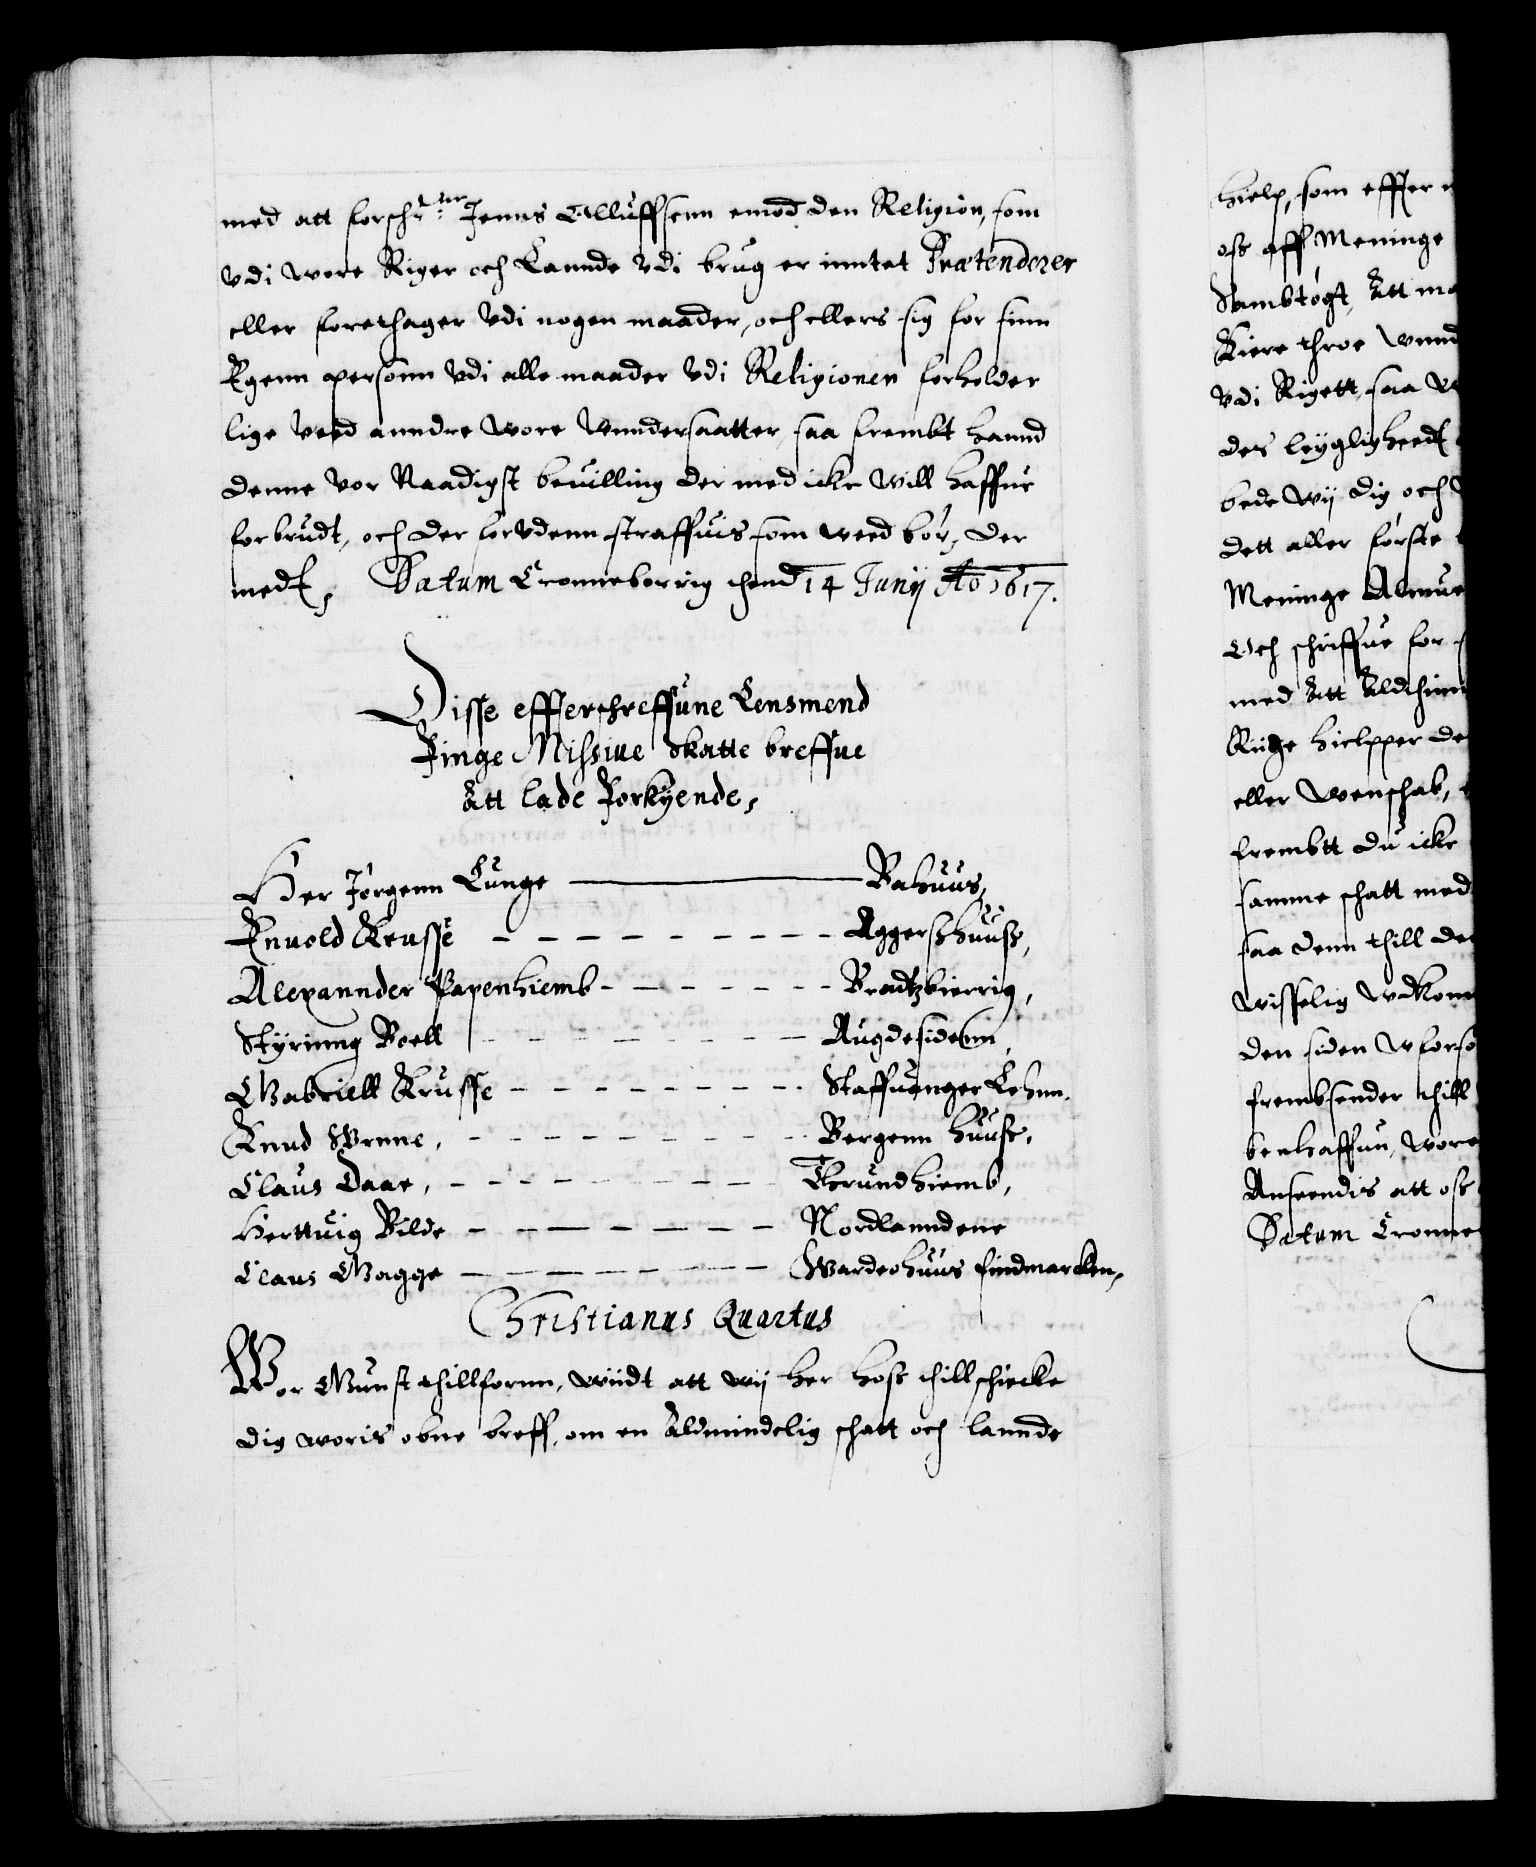 med att forsch:ne Jenns Olluffsenn emod den Religion, som
vdi wore Riger och Lannde vdi brug er inntet Prætenderer
eller forethager vdi nogen maader, och ellers sig for sinn
Egenn personn vdi alle maader vdi Religionen forholder
lige weed anndre wore Wunndersaatter, saa frembt hannd
denne vor Naadigst beuilling der med icke will haffue
forbrudt, och der foruden straffuis som weed bør, der
medt, Datum Cronneborrig thend 14 Junij Ao 1617.
Disse effterschreffune Lensmend
Finge Missiue Skatte breffue
Att lade Forkynde,
Her Jørgenn Lunge Bahuus,
Enuold Krusse Aggershuuss,
Alexannder Papenhiemb Bradtzbierrig,
Styrinng Boell Augdesidenn
Gabriell Krusse Staffuanger Lehnn.
Knud Wrnne, Bergenn huuss,
Claus Daae, Thrundhiemb,
Herttuig Bilde Nordlanndene
Claus Gagge Wardeohuus findmarcken,
Christianus Quartus
Wor Gunst thillfornn, wiidt att wij her hoss thillschicke
dig woris obne breff, om en Aldmindelig schatt och lannde
hielp, som effter
oss aff Meninge
Sambtøgt, Att
Kiere throe
vdi Rigett, saa
des leygligheedt
bede wij dig och
dett aller første
Meninge
Och schriffue for
med Att
Riige hielpper
eller Wenschab,
frembtt du icke
samme schatt med
saa denn thill
wisselig
den siden
frembsender thill
benhaffun,
Anseendis att oss
Datum